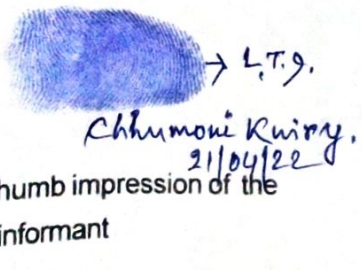 → L.T.I.
Chhumoni Kuiry.
21/04/22
humb impression of the
informant